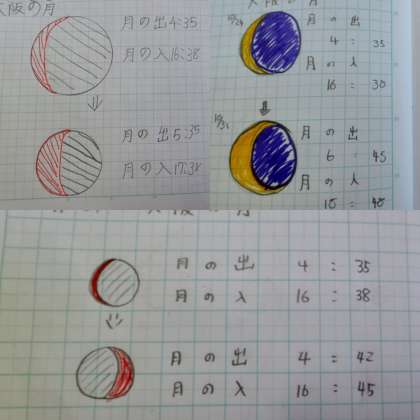 大阪の月
月の出4:35
月の入16:38
月の出5:35
月の入17:38
大阪の月
10/29
月の出
4:35
月の入
16:30
10/31
月の出
6:45
月の入
大阪の月
月の出 4:35
月の入 16:38
月の出 4:42
月の入 16:45